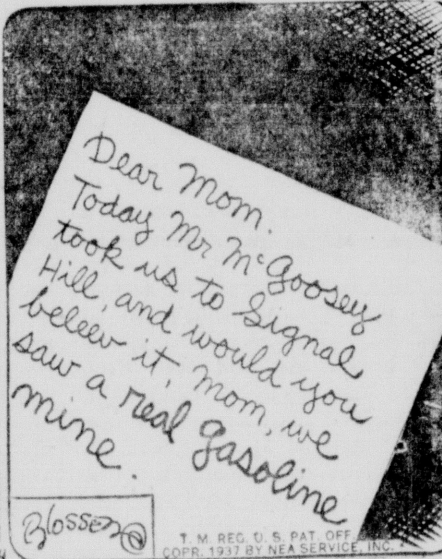 Dear Mom.
Today Mr McGoosey
took us to Signal
Hill, and would you
beleev it, mom, we
saw a real gasoline
mine.
Blosser
T. M. REG. U. S. PAT. OFF.
COPR. 1937 BY NEA SERVICE, INC.